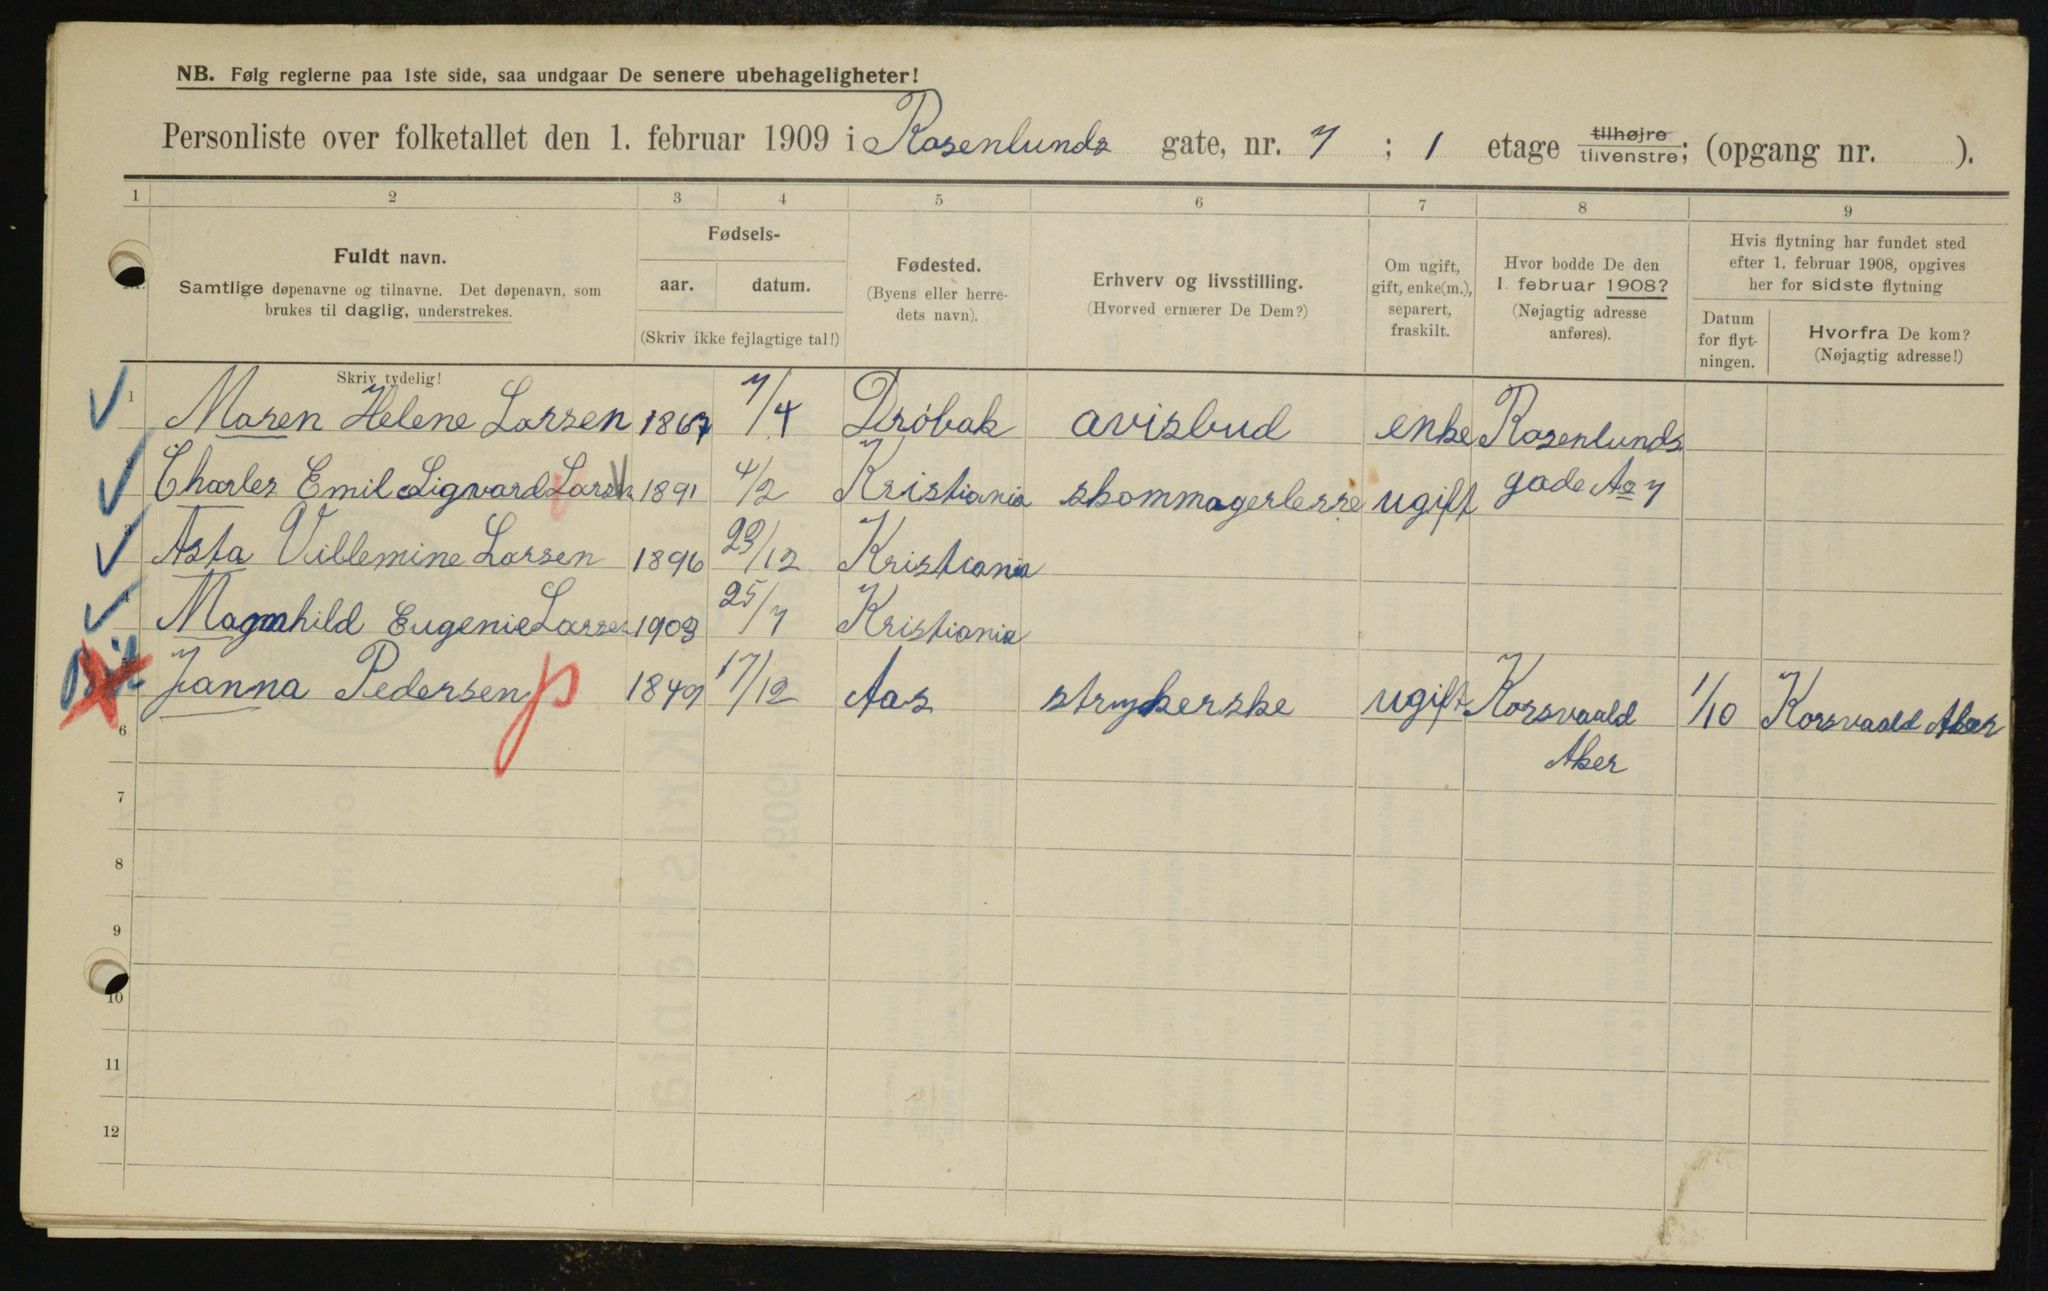 NB. Følg reglerne paa 1ste side, saa undgaar De senere ubehageligheter!
Personliste over folketallet den 1. februar 1909 i Rosenlunds gate, nr. 7 ; 1 etage tilhøjre tilvenstre; (opgang nr. ).
1 2 3 4 5 6 7 8 9
Fuldt navn.
Samtlige døpenavne og tilnavne. Det døpenavn, som
brukes til daglig, understrekes.
Skriv tydelig!
Fødsels-
aar. datum.
(Skriv ikke fejlagtige tal!)
Fødested.
(Byens eller herre-
dets navn).
Erhverv og livsstilling.
(Hvorved ernærer De Dem?)
Om ugift,
gift, enke(m.),
separert,
fraskilt.
Hvor bodde De den
1. februar 1908?
(Nøjagtig adresse
anføres).
Hvis flytning har fundet sted
efter 1. februar 1908, opgives
her for sidste flytning
Datum
for flyt-
ningen.
Hvorfra De kom?
(Nøjagtig adresse!)
1 Maren Helene Larsen 1867 7/4 Drøbak avisbud enke Rosenlunds
Charles Emil Sigvard Larsen 1891 4/2 Kristiania skommagerlerre ugift gade No 7
3 Asta Villemine Larsen 1896 23/12 Kristiania
4 Magnhild Eugenie Larsen 1903 25/7 Kristiania
Janna Pedersen 1849 17/12 Aas strykerske ugift Korsvaald 1/10 Korsvaald Aker
6 Aker
7
8
9
10
11
12